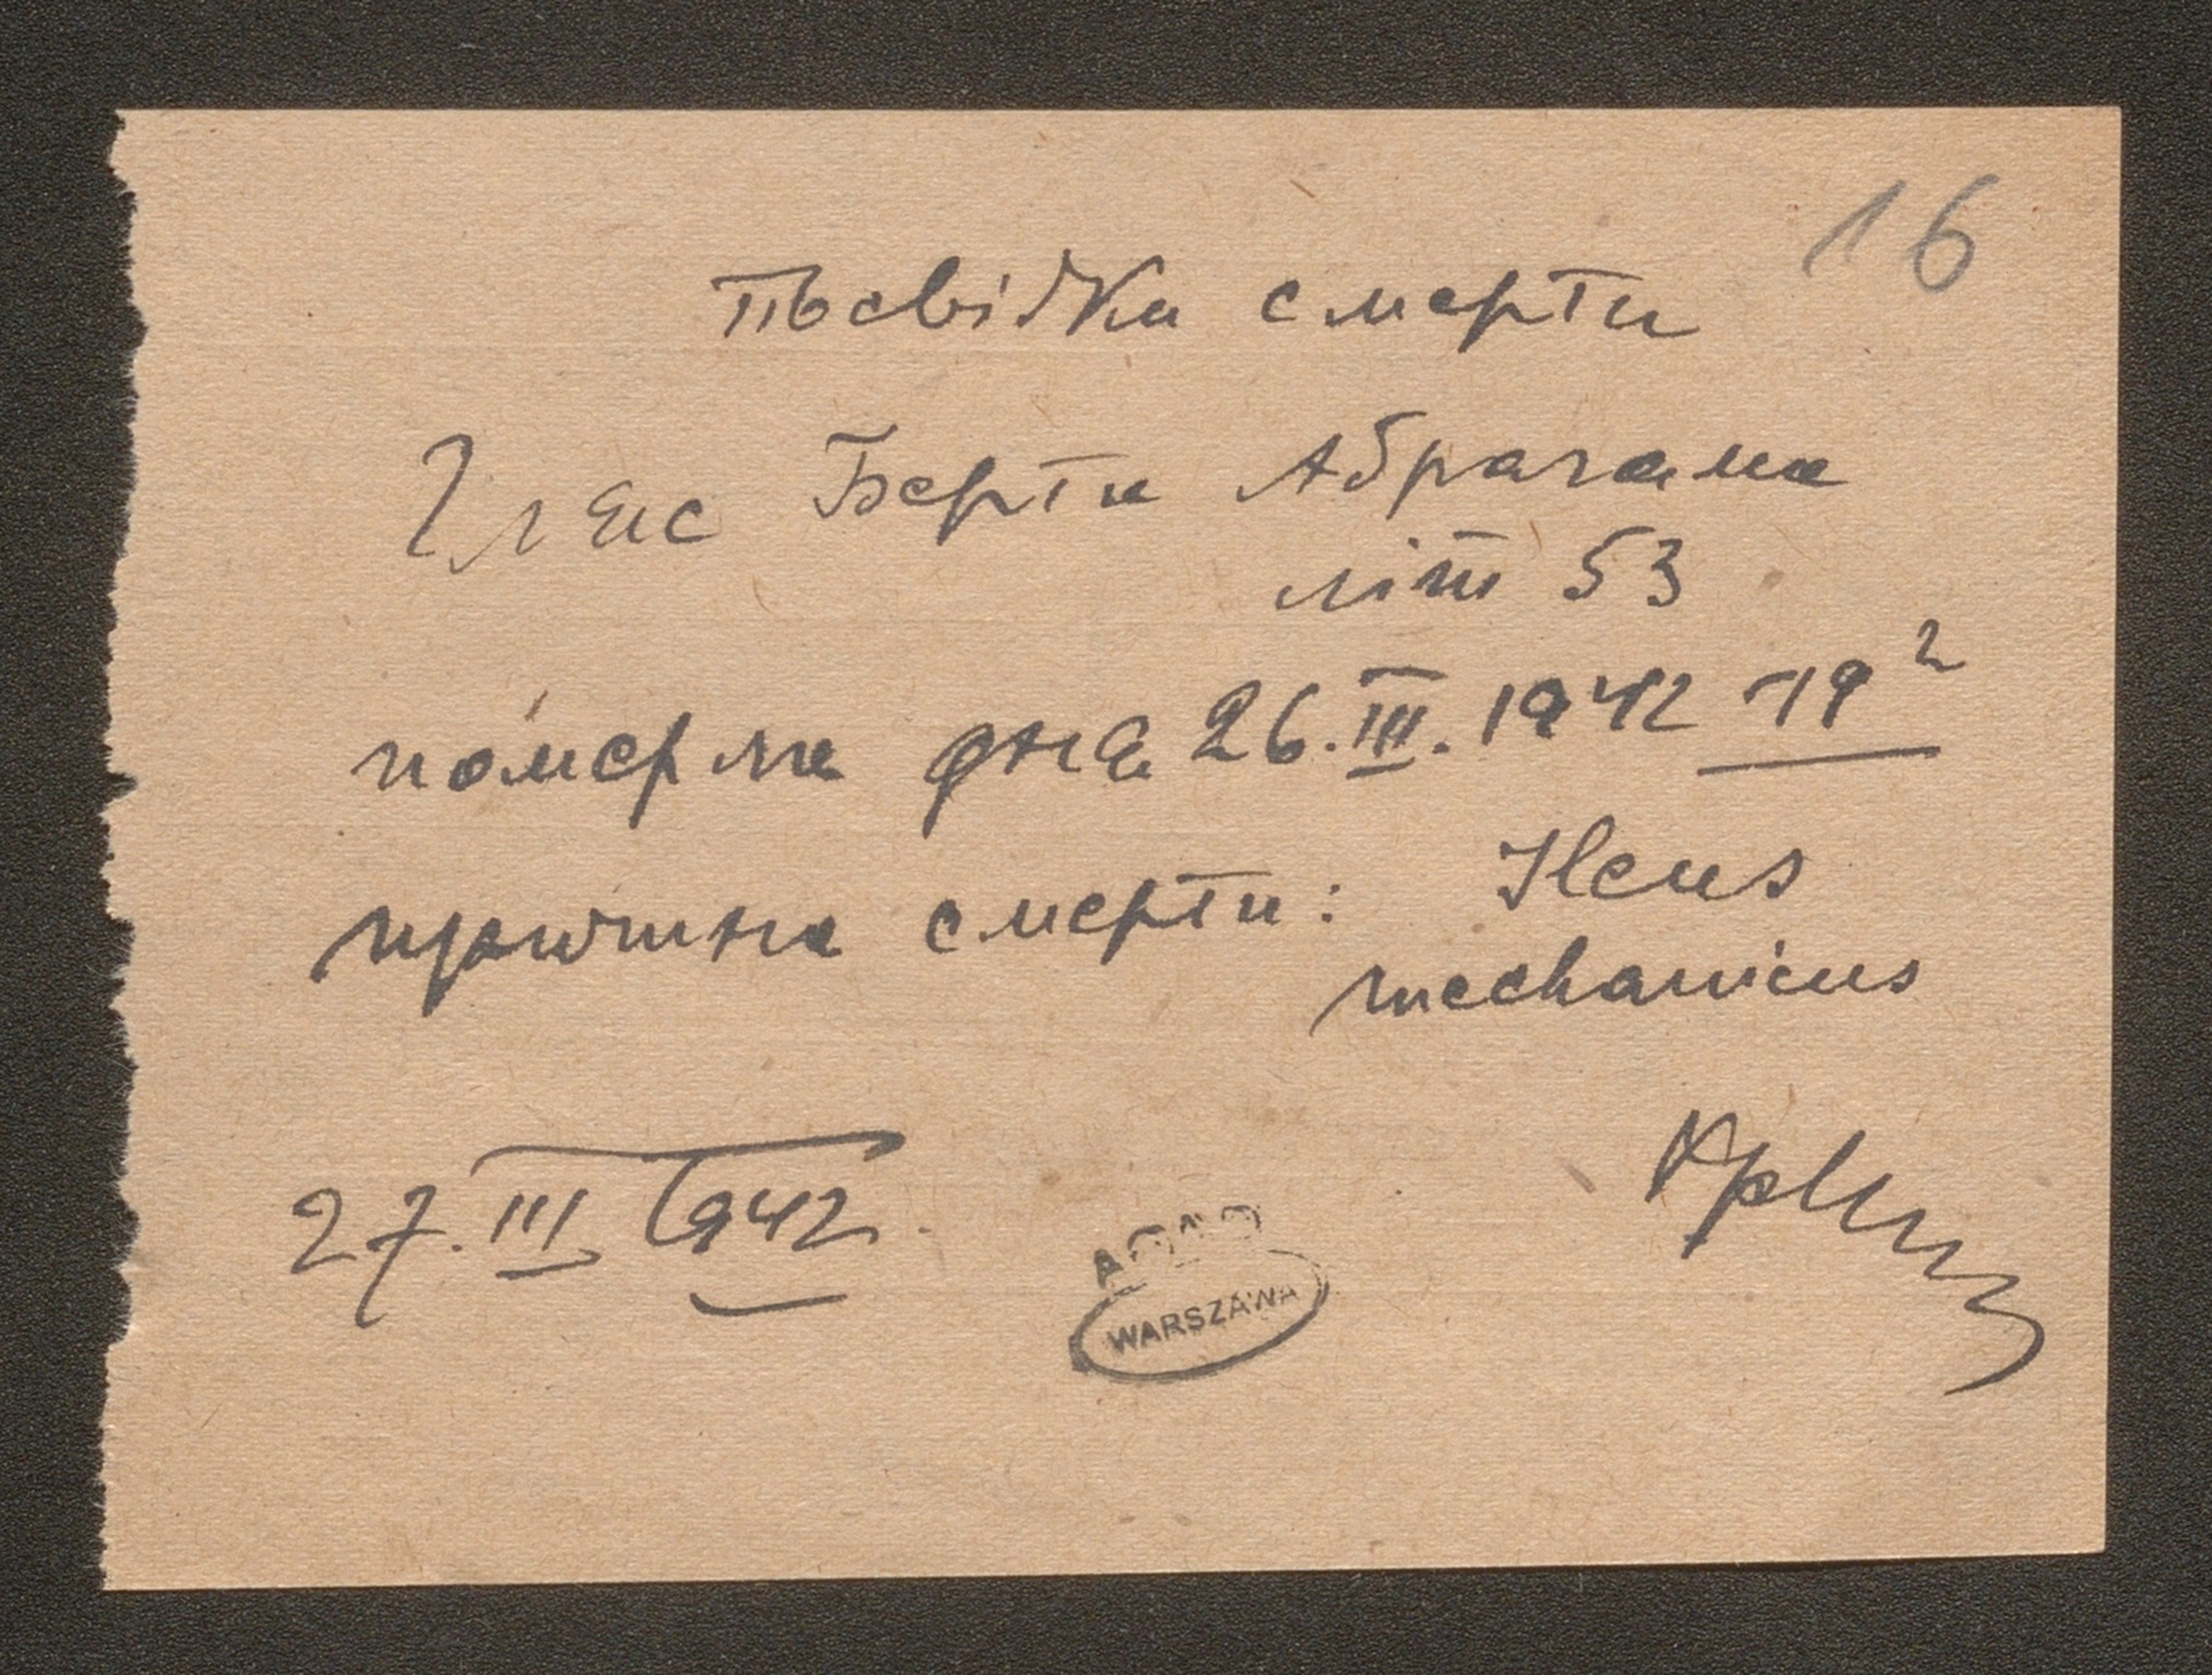 16
Посвідка смерти
Глас Берта Абрагама
літ 53
померла дня 26.III.1942 19²
причина смерти: Ileus
mechanicus
27.III 1942.
AGAD
WARSZAWA